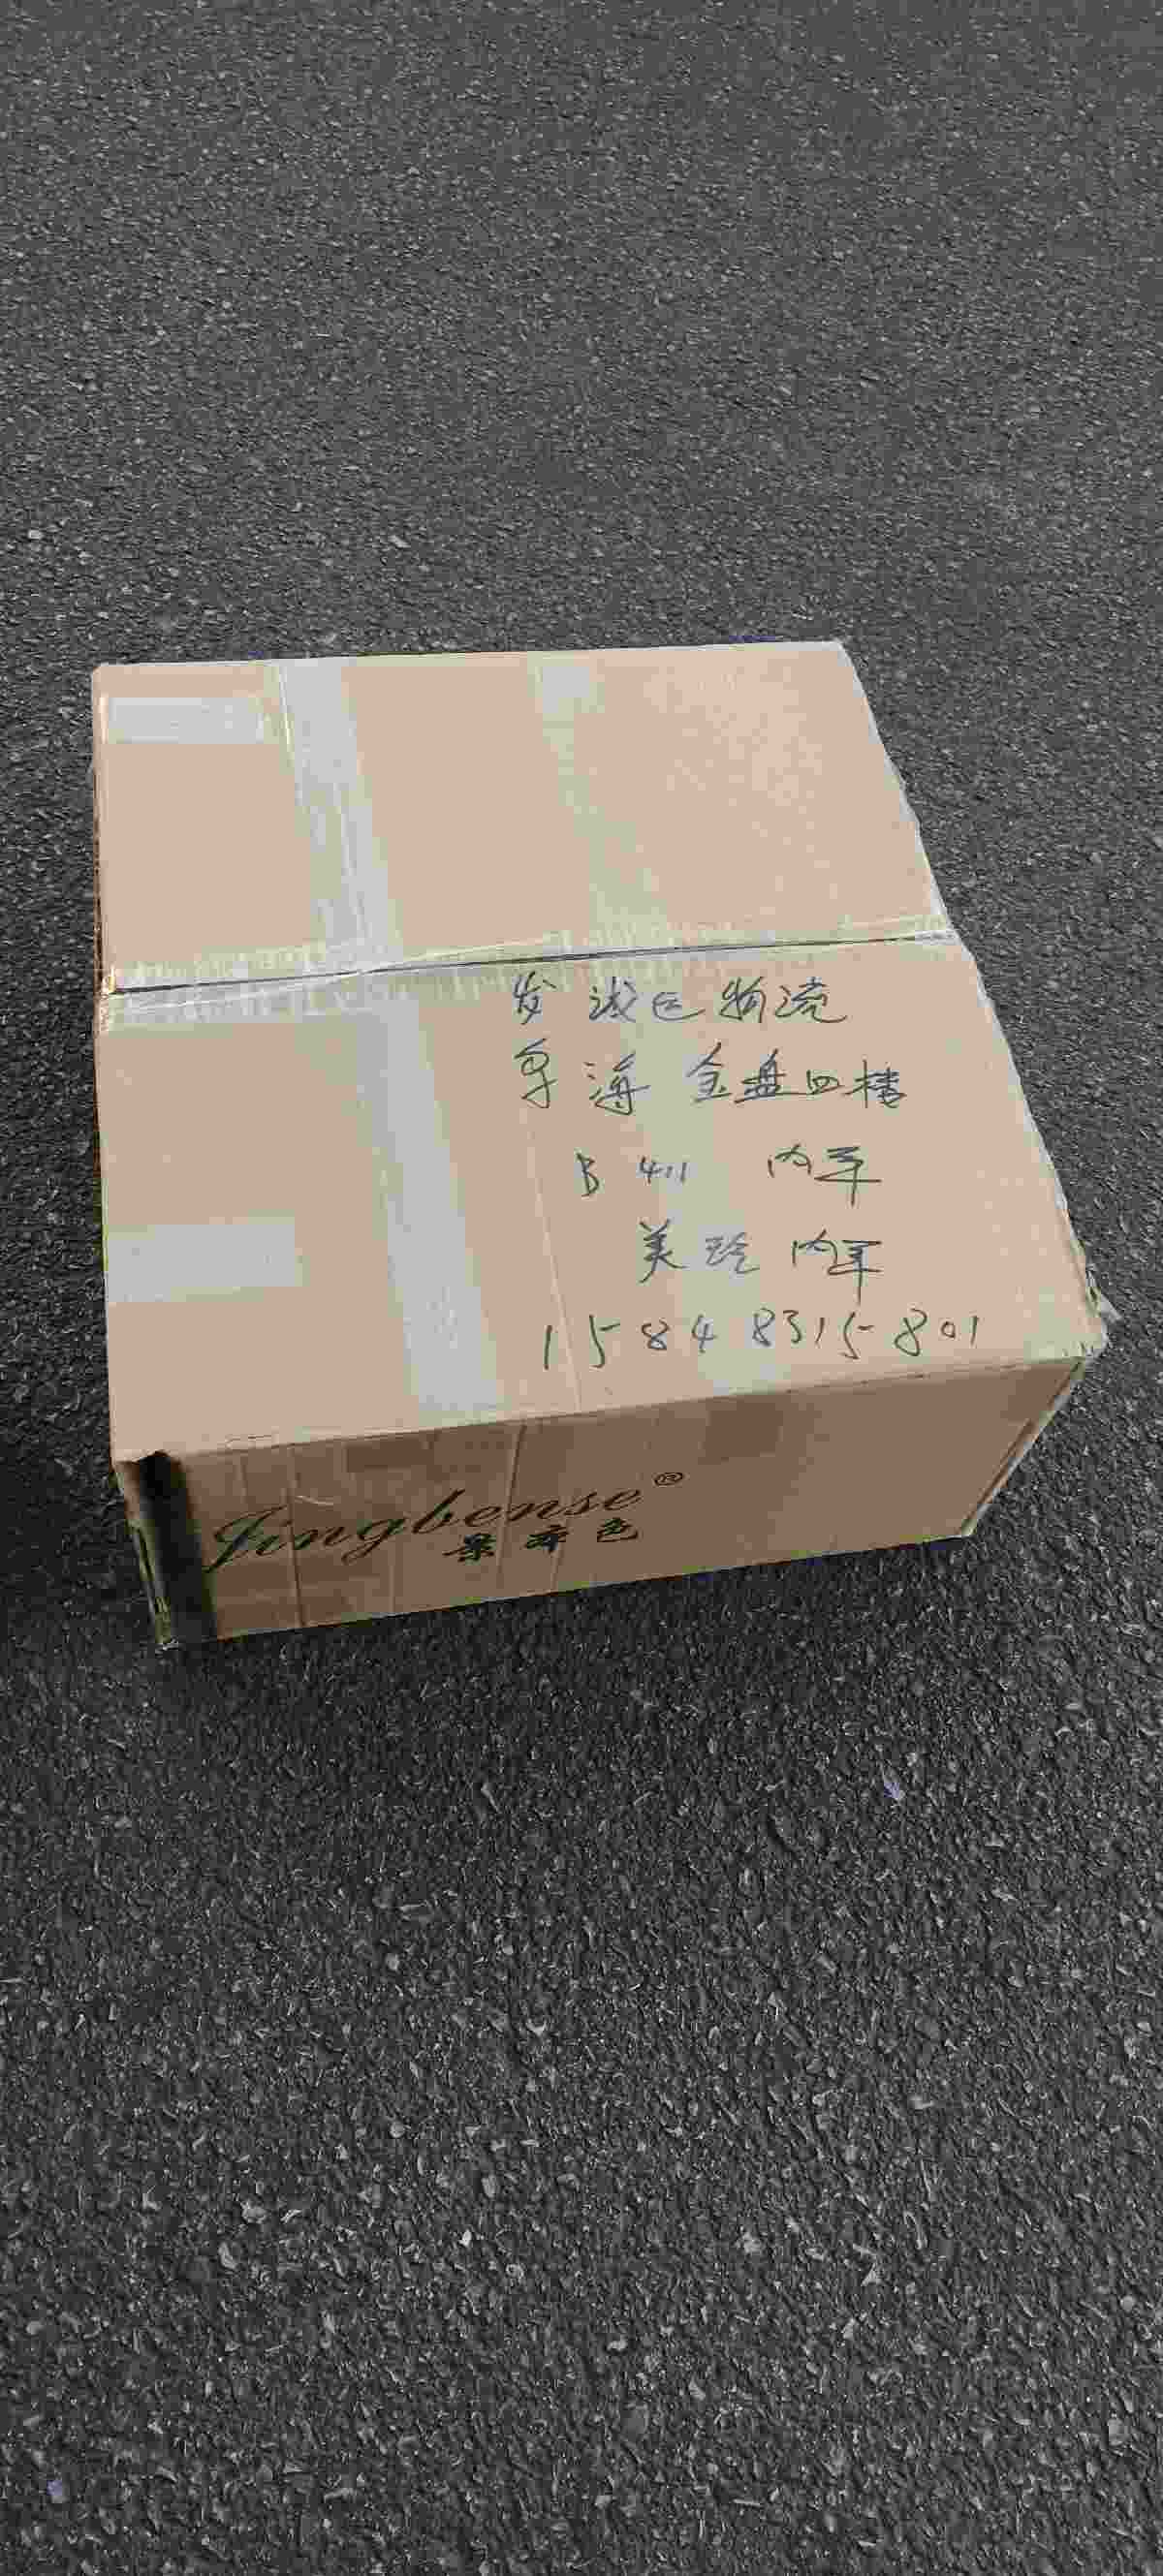 发 诚运物流
乌海 金盘四楼
B 411 内车
美玲 内车
15848315801
Jingbense®
景本色